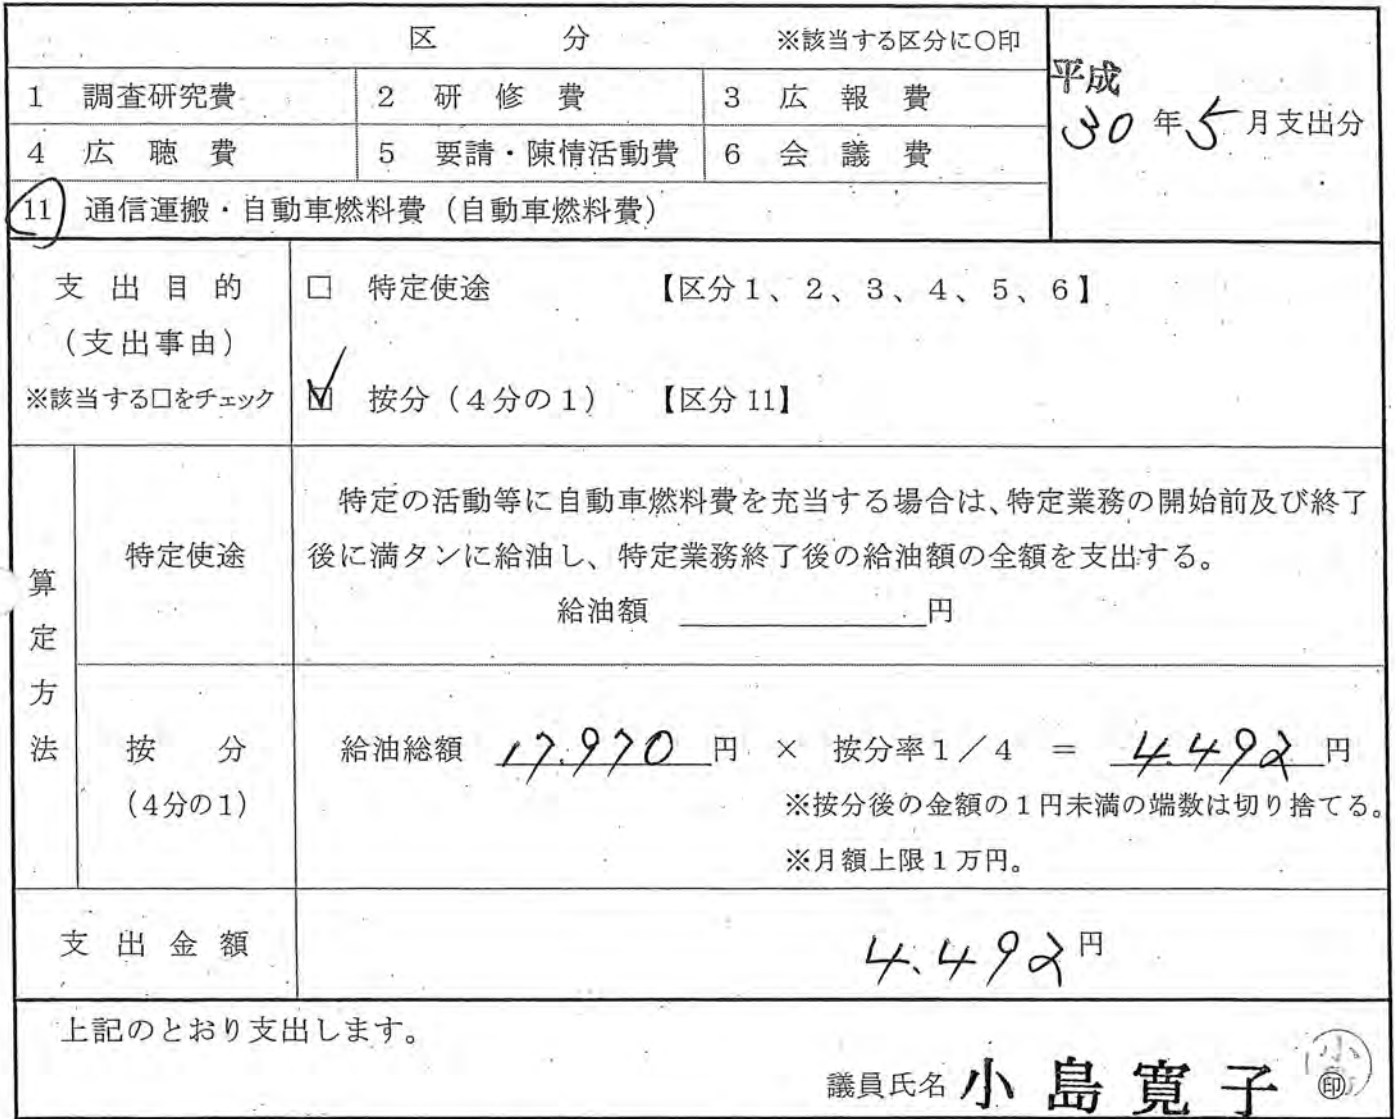 区 分 ※該当する区分に○印
1 調査研究費 2 研修費 3 広報費
平成
30年5月支出分
4 広聴費 5 要請・陳情活動費 6 会議費
11 通信運搬・自動車燃料費(自動車燃料費)
支出目的
(支出事由)
※該当する□をチェック
□ 特定使途 【区分1、2、3、4、5、6】
☑ 按分(4分の1) 【区分11】
算定方法
特定使途
特定の活動等に自動車燃料費を充当する場合は、特定業務の開始前及び終了
後に満タンに給油し、特定業務終了後の給油額の全額を支出する。
給油額 円
按分
(4分の1)
給油総額 17.970円 × 按分率1/4 = 4.492円
※按分後の金額の1円未満の端数は切り捨てる。
※月額上限1万円。
支出金額 4.492円
上記のとおり支出します。
議員氏名 小島寛子 ㊞